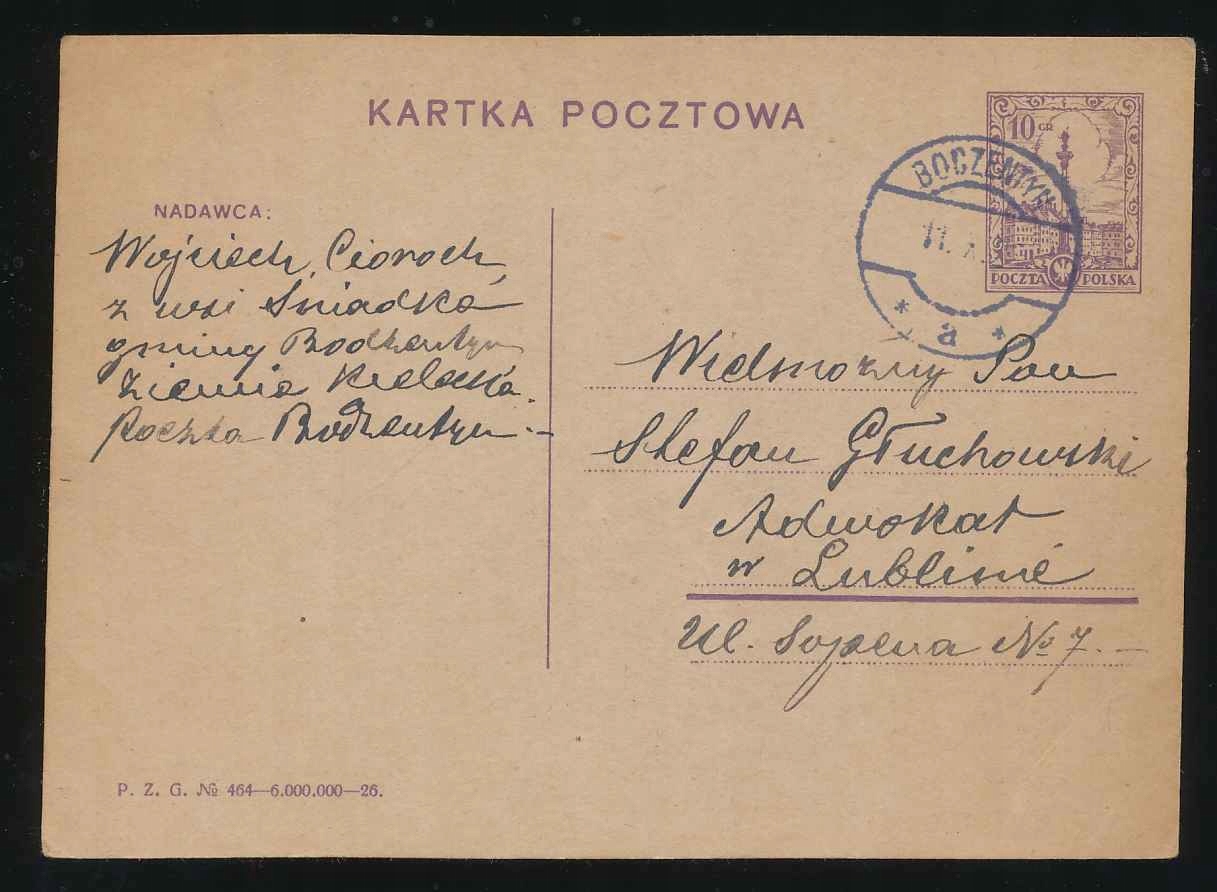 KARTKA POCZTOWA
10 GR
POCZTA POLSKA
BOCZENTYN
11. X.
* a *
NADAWCA:
Wojciech, Cioroch,
z wsi Sniadka
gminy Bodzentyn
Ziemia Kielecka.
Poczta Bodzentyn.–
Wielmożny Pan
Stefan Głuchowski
Adwokat
w Lublinie
Ul. Szpena № 7.–
P. Z. G. № 464—6.000.000—26.